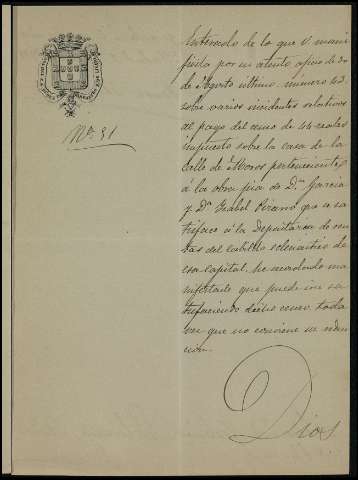 Nº 31
Enterado de lo que V. mani
fiesta por su atento oficio de 30
de Agosto último número 43
sobre varios incidentes relativos
al pago del censo de 44 reales
impuesto sobre la casa de la
Calle de Moros perteneciente
á la obra pia de Dn. García
y Dª Isabel que se sa
tisface á la Depositaria de ren
tas del Cabildo eclesiástico de
esa Capital, he acordado ma
nifestarle que puede ir sa
tisfaciendo dicho censo toda
vez que no conviene su reden
ción.
Dios